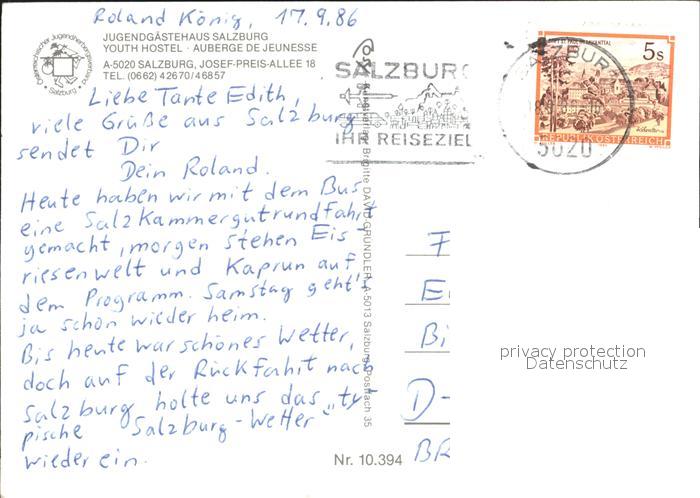 Roland König, 17.9.86
JUGENDGÄSTEHAUS SALZBURG
YOUTH HOSTEL · AUBERGE DE JEUNESSE
A-5020 SALZBURG, JOSEF-PREIS-ALLEE 18
TEL. (0662) 42670/46857
Österreichischer Jugendherbergsverband
Salzburg
Liebe Tante Edith,
viele Grüße aus Salzburg
sendet Dir
Dein Roland.
Heute haben wir mit dem Bus
eine Salzkammergutrundfahrt
gemacht, morgen stehen Eis-
riesenwelt und Kaprun auf
dem Programm. Samstag geht's
ja schon wieder heim.
Bis heute war schönes Wetter,
doch auf der Rückfahrt nach
Salzburg holte uns das "ty-
pische Salzburg-Wetter"
wieder ein.
Brigitte DAVID-GRÜNDLER, A-5013 Salzburg, Postfach 35
Nr. 10.394
SALZBURG
IHR REISEZIEL
SALZBURG
5020
5s
REPUBLIK ÖSTERREICH
F
E
Bi
D-
BR
privacy protection
Datenschutz